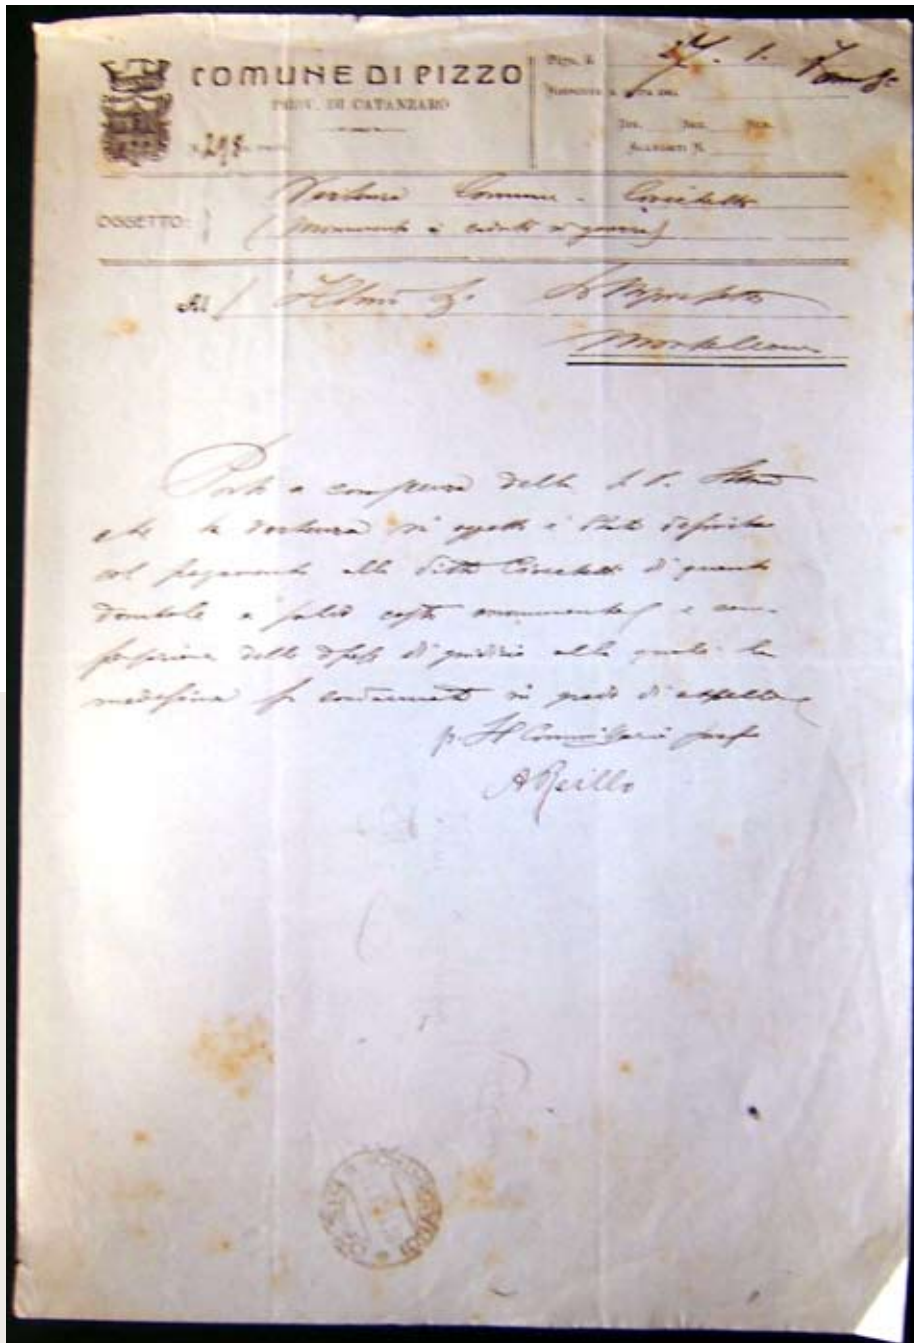 COMUNE DI PIZZO
PROV. DI CATANZARO
N. 298
Pizzo, li 27. 1.
RISPOSTA A NOTA DEL
DIV. SEZ. N.
ALLEGATI N.
OGGETTO: Vertenza Comune -
(Monumento ai caduti in guerra)
Al Ill.mo Sottoprefetto
Monteleone
Porto a conoscenza della S. V. Ill.ma
che la vertenza in oggetto è stata definita
col pagamento alla Ditta di quanto
dovutole a saldo costo monumento e
delle spese di giudizio alle quali la
medesima fu condannata in grado di appello
p. Il Commissario pref.